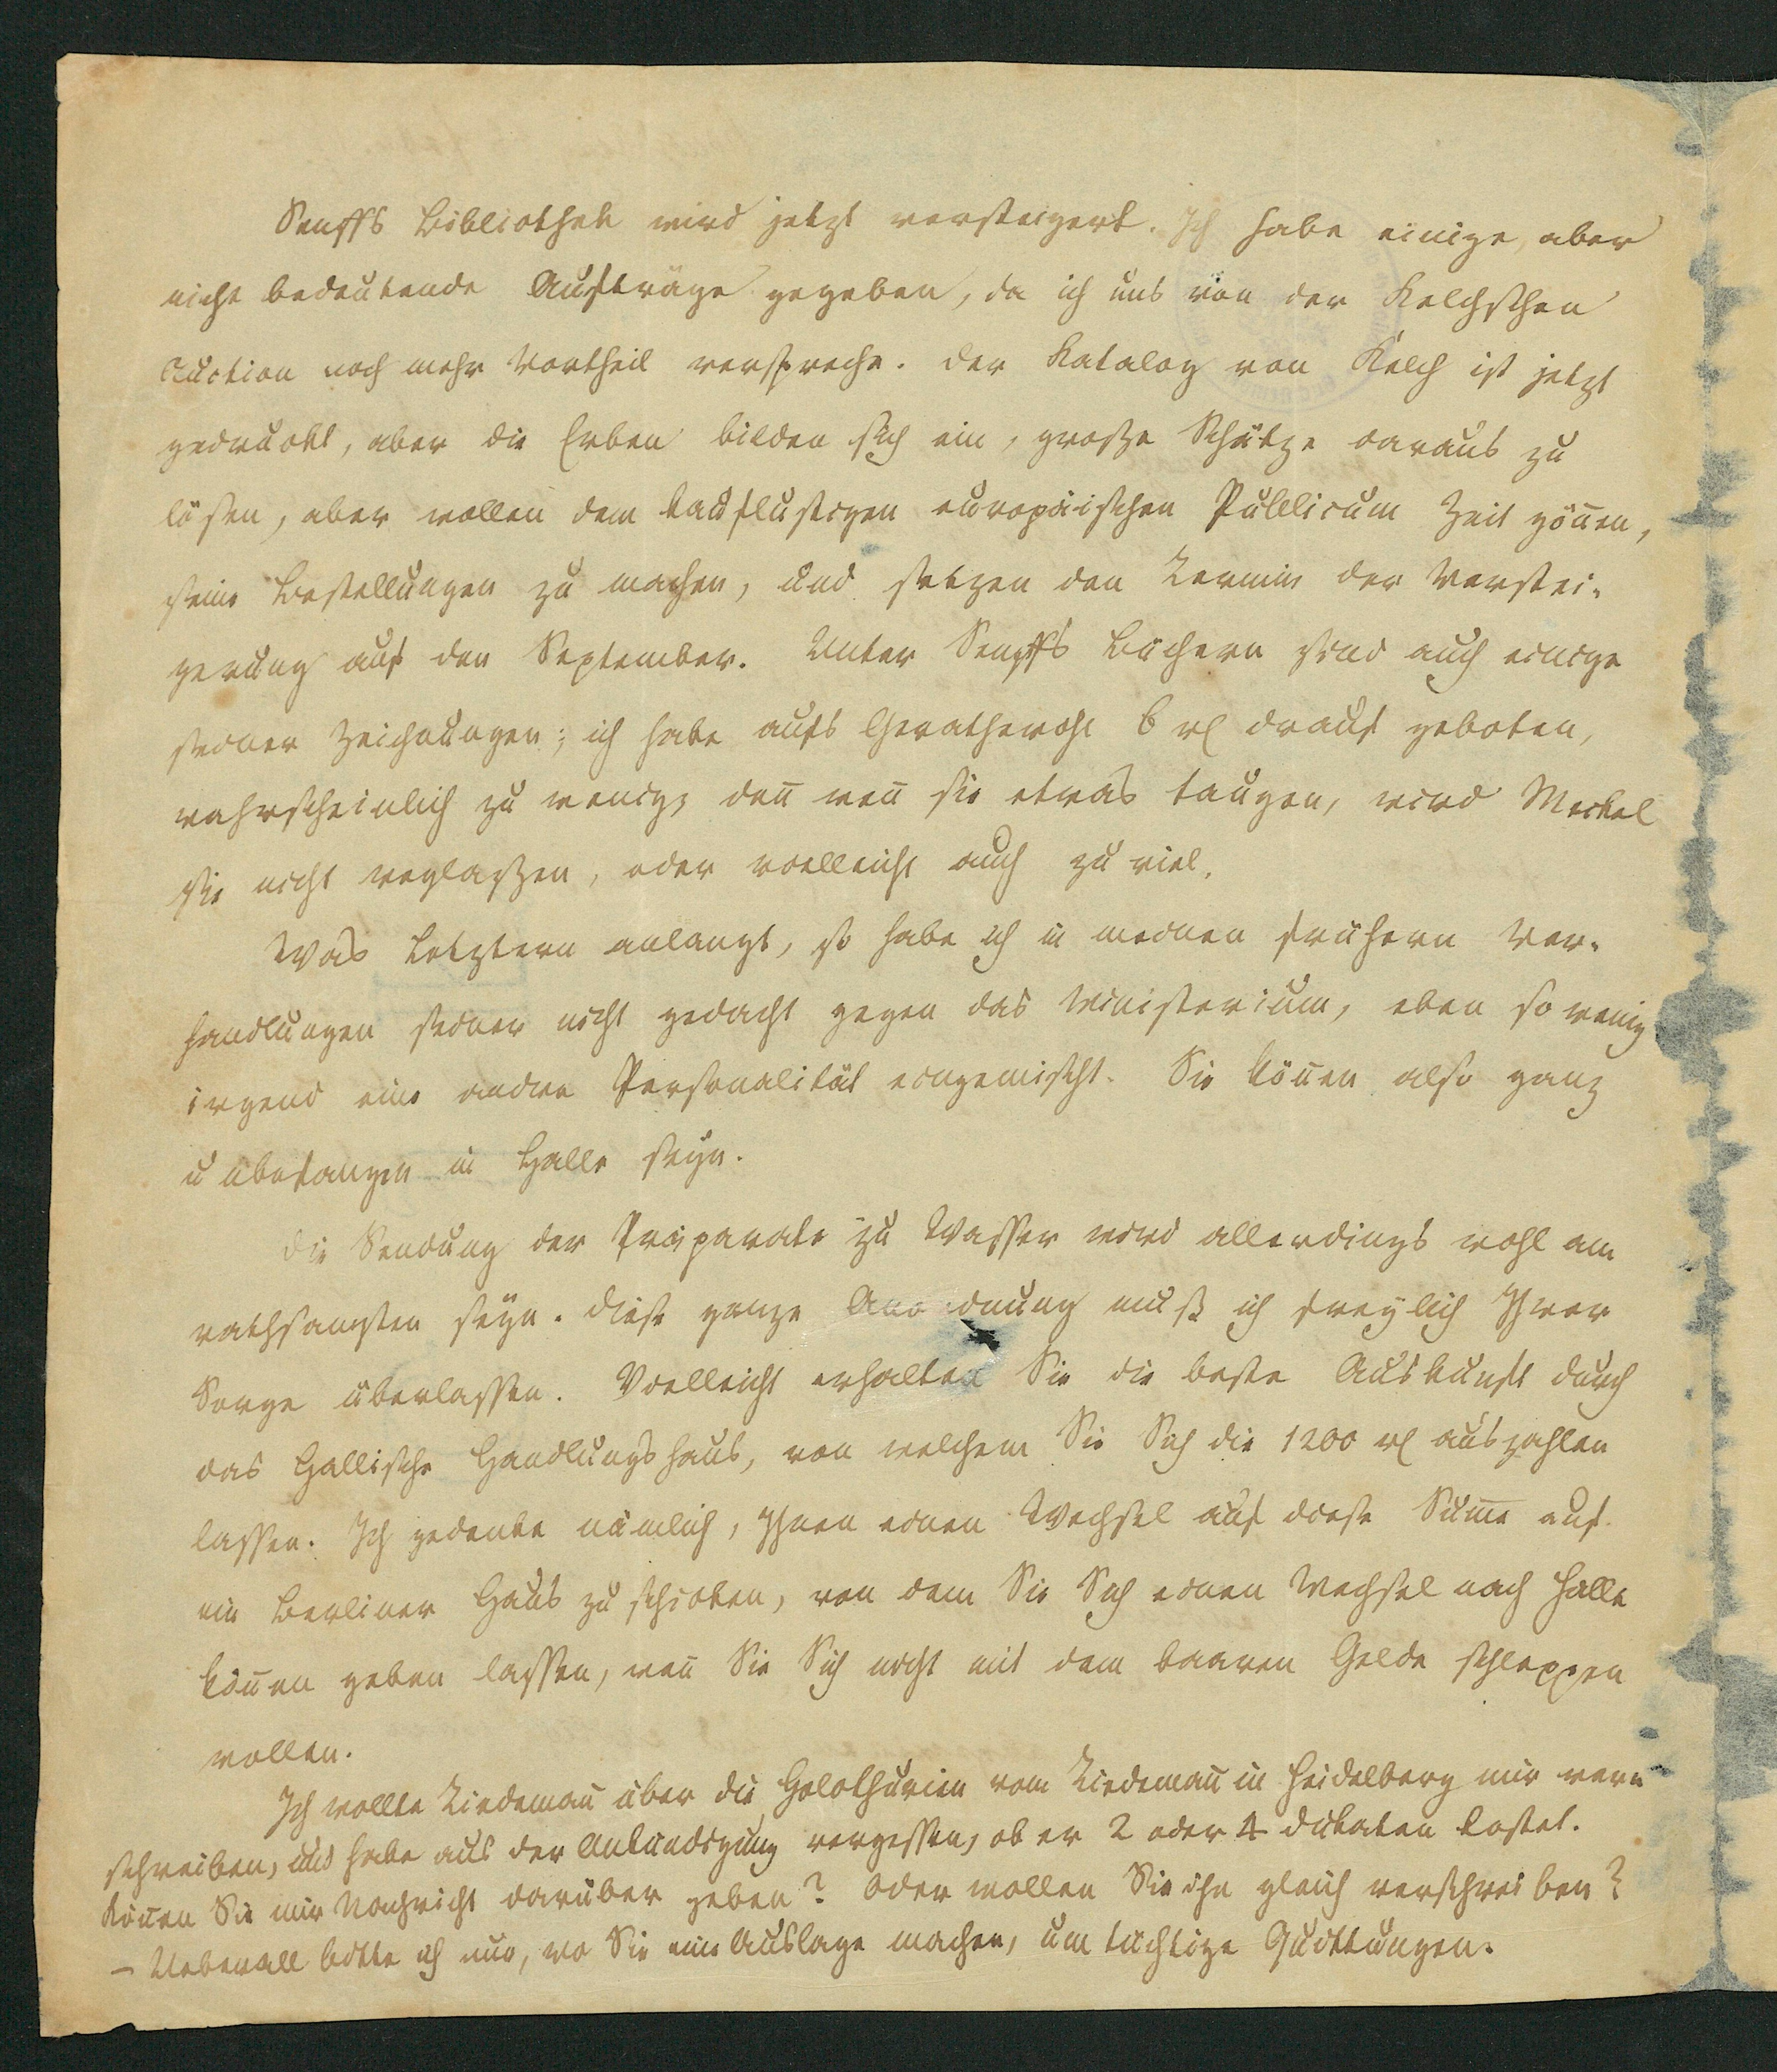 Senffs Bibliothek wird jetzt versteigert. Ich habe einige, aber
nicht bedeutende Aufträge gegeben, da ich uns von der Kelchschen
Auction noch mehr Vortheil verspreche. Der Katalog von Kelch ist jetzt
gedruckt, aber die Erben bilden sich ein, große Schätze daraus zu
lösen, aber wollen dem kauflustigen europäischen Publicum Zeit gönnen,
seine Bestellungen zu machen, und setzen den Termin der Verstei-
gerung auf den September. Unter Senffs Büchern sind auch einige
seiner Zeichnungen; ich habe aufs Gerathewohl 6 rl drauf geboten,
wahrscheinlich zu wenig, denn wenn sie etwas taugen, wird Meckel
sie nicht weglaßen, oder vielleicht auch zu viel.
Was Letztern anlangt, so habe ich in meinen frühern Ver-
handlungen seiner nicht gedacht gegen das Ministerium, eben so wenig
irgend eine andre Personalität eingemischt. Sie können also ganz
unbefangen in Halle seyn.
Die Sendung der Präparate zu Wasser wird allerdings wohl am
rathsamsten seyn. Diese ganze Anordnung muß ich freylich Ihrer
Sorge überlassen. Vielleicht erhalten Sie die beste Auskunft durch
das Hallische Handlungshaus, von welchem Sie Sich die 1200 rl auszahlen
lassen. Ich gedenke nämlich, Ihnen einen Wechsel auf diese Summe auf
ein Berliner Haus zu schicken, von dem Sie Sich einen Wechsel nach Halle
können geben lassen, wenn Sie Sich nicht mit dem baaren Gelde schleppen
wollen.
Ich wollte Tiedemann über die Holothurien vom Tiedemann in Heidelberg mir ver-
schreiben, und habe aus der Ankündigung vergessen, ob er 2 oder 4 Dukaten kostet.
Können Sie mir Nachricht darüber geben? Oder wollen Sie ihn gleich verschreiben?
– Ueberall bitte ich nur, wo Sie eine Auslage machen, um tüchtige Quittungen.